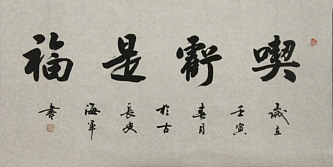 喫虧是福
歲在
壬寅
春月
於古
長安
海軍
書